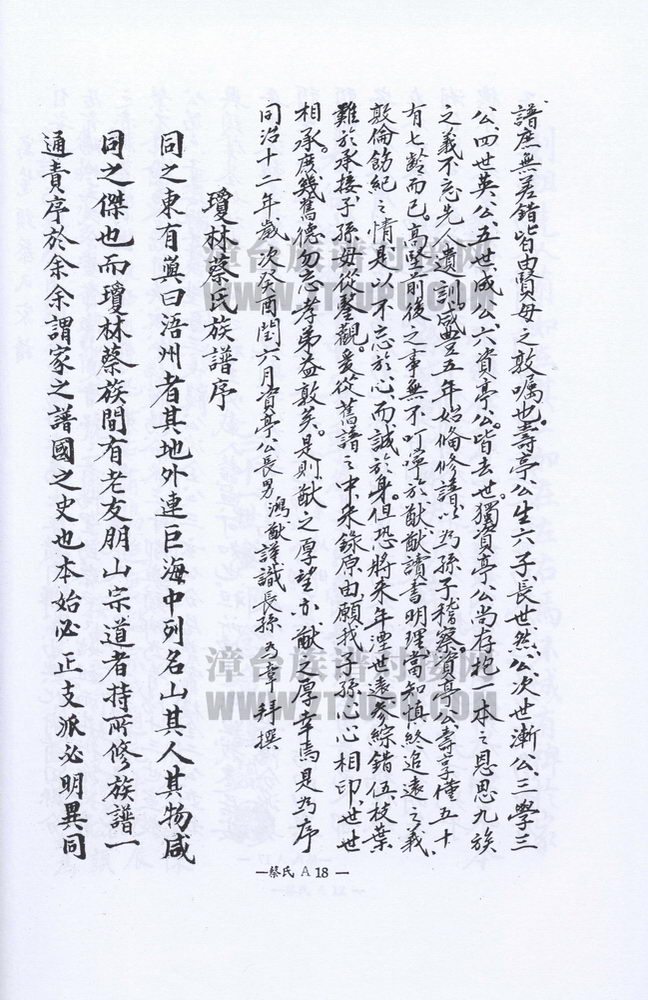 譜庶無差錯皆由賢母之敦囑也壽亭公生六子長世然公次世漸公三學三
公四世英公五世成公六資亭公皆去世獨資亭公尚存抱一本之恩思九族
之義不忘先人遺訓咸豐五年始脩修譜以為孫子稽察資亭公壽享僅五十
有七齡而已高堅前後之事無不叮寧於猷猷讀書明理當知慎終追遠之義
敦倫飭紀之情是以不忘於心而誠於身但恐將來年湮世遠參綜錯伍枝葉
難於承接子孫毋從鑒觀爰從舊譜之中采錄原由願我子孫心心相印世世
相承庶幾舊德勿忘孝弟益敦矣是則猷之厚望亦猷之厚幸焉是為序
同治十二年歲次癸酉閏六月資亭公長男鴻猷謹識長孫乃韋拜撰
瓊林蔡氏族譜序
同之東有島曰浯州者其地外連巨海中列名山其人其物咸
同之傑也而瓊林蔡族間有老友朋山宗道者持所修族譜一
通責序於余余謂家之譜國之史也本始必正支派必明異同
—蔡氏 A 18 —
漳台族谱对接网
WWW.ZTZUPU.COM
漳台族谱对接网
WWW.ZTZUPU.COM